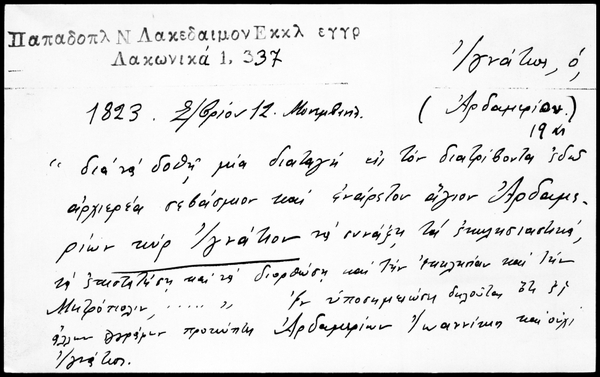 Παπαδοπλ Ν Λακεδαιμον Εκκλ εγγρ
Λακωνικά 1, 337
Ἰγνάτιος, ὁ,
1823. Σ/βρίου 12. Μονεμβασ.
(Ἀρδαμερίου.)
19 αι
"διὰ νὰ δοθῇ μία διαταγὴ εἰς τὸν διατρίβοντα ἐδῶ
ἀρχιερέα σεβάσμιον καὶ ἐνάρετον ἅγιον Ἀρδαμε-
ρίων κὺρ Ἰγνάτιον νὰ συνάξῃ τὰ ἐκκλησιαστικά,
νὰ ἐπιστατήσῃ καὶ νὰ διορθώσῃ καὶ τὴν ἐκκλησίαν καὶ τὴν
Μητρόπολιν, ..... " Ἐν ὑποσημειώσει δηλοῦται ὅτι ἐξ
ἄλλων ἐγγράφων προκύπτει Ἀρδαμερίων Ἰωαννίκιος καὶ οὐχὶ
Ἰγνάτιος.